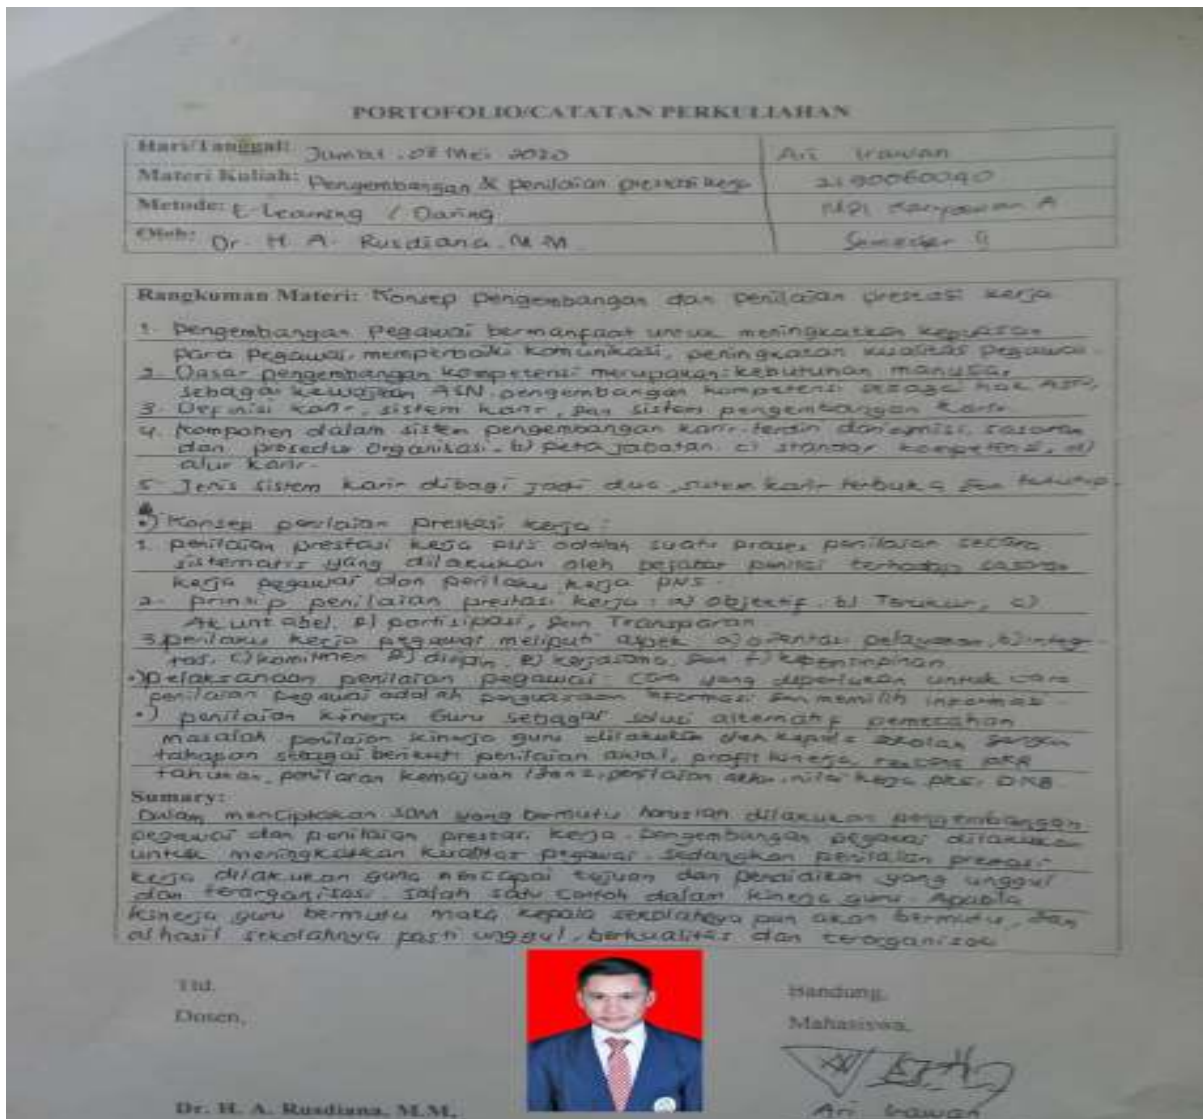 PORTOFOLIO/CATATAN PERKULIAHAN
Hari/Tanggal: Jumat, 08 Mei 2020 Ari Irawan
Materi Kuliah: Pengembangan & penilaian prestasi kerja 2190060040
Metode: E-Learning / Daring MPI Karyawan A
Oleh: Dr. H. A. Rusdiana, M.M. Semester II
Rangkuman Materi: Konsep pengembangan dan penilaian prestasi kerja
1. pengembangan pegawai bermanfaat untuk meningkatkan kepuasan
para pegawai, memperbaiki komunikasi, peningkatan kualitas pegawai.
2. Dasar pengembangan kompetensi merupakan: kebutuhan manusia,
sebagai kewajiban ASN, pengembangan kompetensi sebagai hak ASN,
3. Definisi karir, sistem karir, dan sistem pengembangan karir
4. komponen dalam sistem pengembangan karir terdiri dari a) misi, sasaran
dan prosedur organisasi. b) peta jabatan. c) standar kompetensi, d)
alur karir.
5. Jenis sistem karir dibagi jadi dua, sistem karir terbuka dan tertutup
•) Konsep penilaian prestasi kerja:
1. penilaian prestasi kerja PNS adalah suatu proses penilaian secara
sistematis yang dilakukan oleh pejabat penilai terhadap sasaran
kerja pegawai dan perilaku kerja PNS.
2. prinsip penilaian prestasi kerja: a) objektif. b) Terukur, c)
Akuntabel. d) partisipasi, dan Transparan
3. perilaku kerja pegawai meliputi aspek a) orientasi pelayanan, b) integ-
ritas, c) komitmen d) disiplin, e) kerjasama, dan f) kepemimpinan
•) pelaksanaan penilaian pegawai: cara yang diperlukan untuk cara
penilaian pegawai adalah penguasaan informasi dan memilih informasi.
•) penilaian kinerja Guru sebagai solusi alternatif pemecahan
masalah penilaian kinerja guru dilakukan oleh kepala sekolah dengan
tahapan sebagai berikut: penilaian awal, profil kinerja, rencana
tahunan, penilaian kemajuan penilaian nilai kerja
Sumary:
Dalam menciptakan SDM yang bermutu haruslah dilakukan pengembangan
pegawai dan penilaian prestasi kerja. pengembangan pegawai dilakukan
untuk meningkatkan kualitas pegawai. sedangkan penilaian prestasi
kerja dilakukan guna mencapai tujuan dan pendidikan yang unggul
dan terorganisasi. salah satu contoh dalam kinerja guru. Apabila
kinerja guru bermutu maka kepala sekolahnya pun akan bermutu, dan
alhasil sekolahnya pasti unggul, berkualitas dan terorganisasi
Ttd. Bandung,
Dosen, Mahasiswa,
Dr. H. A. Rusdiana, M.M, Ari Irawan